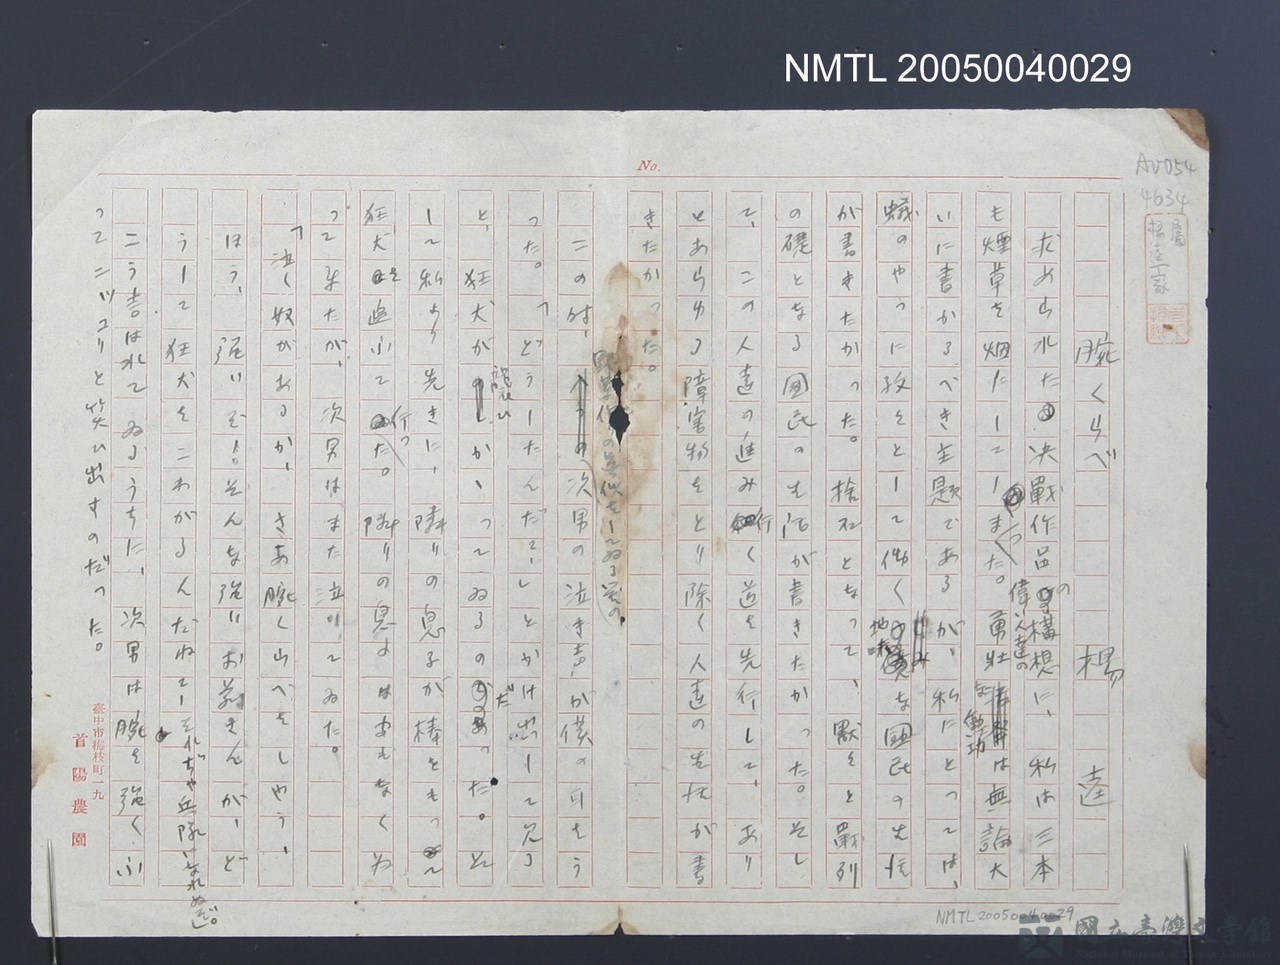 NMTL 20050040029
No.
AV054
4634
腕くらべ 楊逵
求められた決戰作品の構想に、私は三本
も煙草を烟にしてしまた。偉い人達の勇壯な勲功は無論大
いに書かるべき主題であるが、私にとつては、
蟻のやうに孜々として働く地味な國民の生活
が書きたかつた。捨石となつて、默々と戰列
の礎となる國民の生活が書きたかつた。そし
て、この人達の進み行く道を先行して、あり
とあらゆる障害物をとり除く人達の生活が書
きたかつた。
この時、次男の泣き声が僕の耳をう
つた。「どうしたんだ?」とかけ出して見る
と、狂犬が襲ひかかつてゐるのだつた。そ
して私より先きに、隣りの息子が棒をもつて
狂犬を追ふて行つた。隣りの息子はまもなく
つて来たが、次男はまた泣いてゐた。
「泣く奴があるか、さあ腕くらべをしやう、
ほう、強いぞ!そんな強いお前さんが、ど
うして狂犬をこわがるんだねーそれぢや兵隊になれぬぞ。
こう言はれてゐるうちに、次男は腕を強くふ
つてニツコリと笑ひ出すのだつた。
臺中市梅枝町一九
首陽農園
NMTL20050040029
國立臺灣文學館